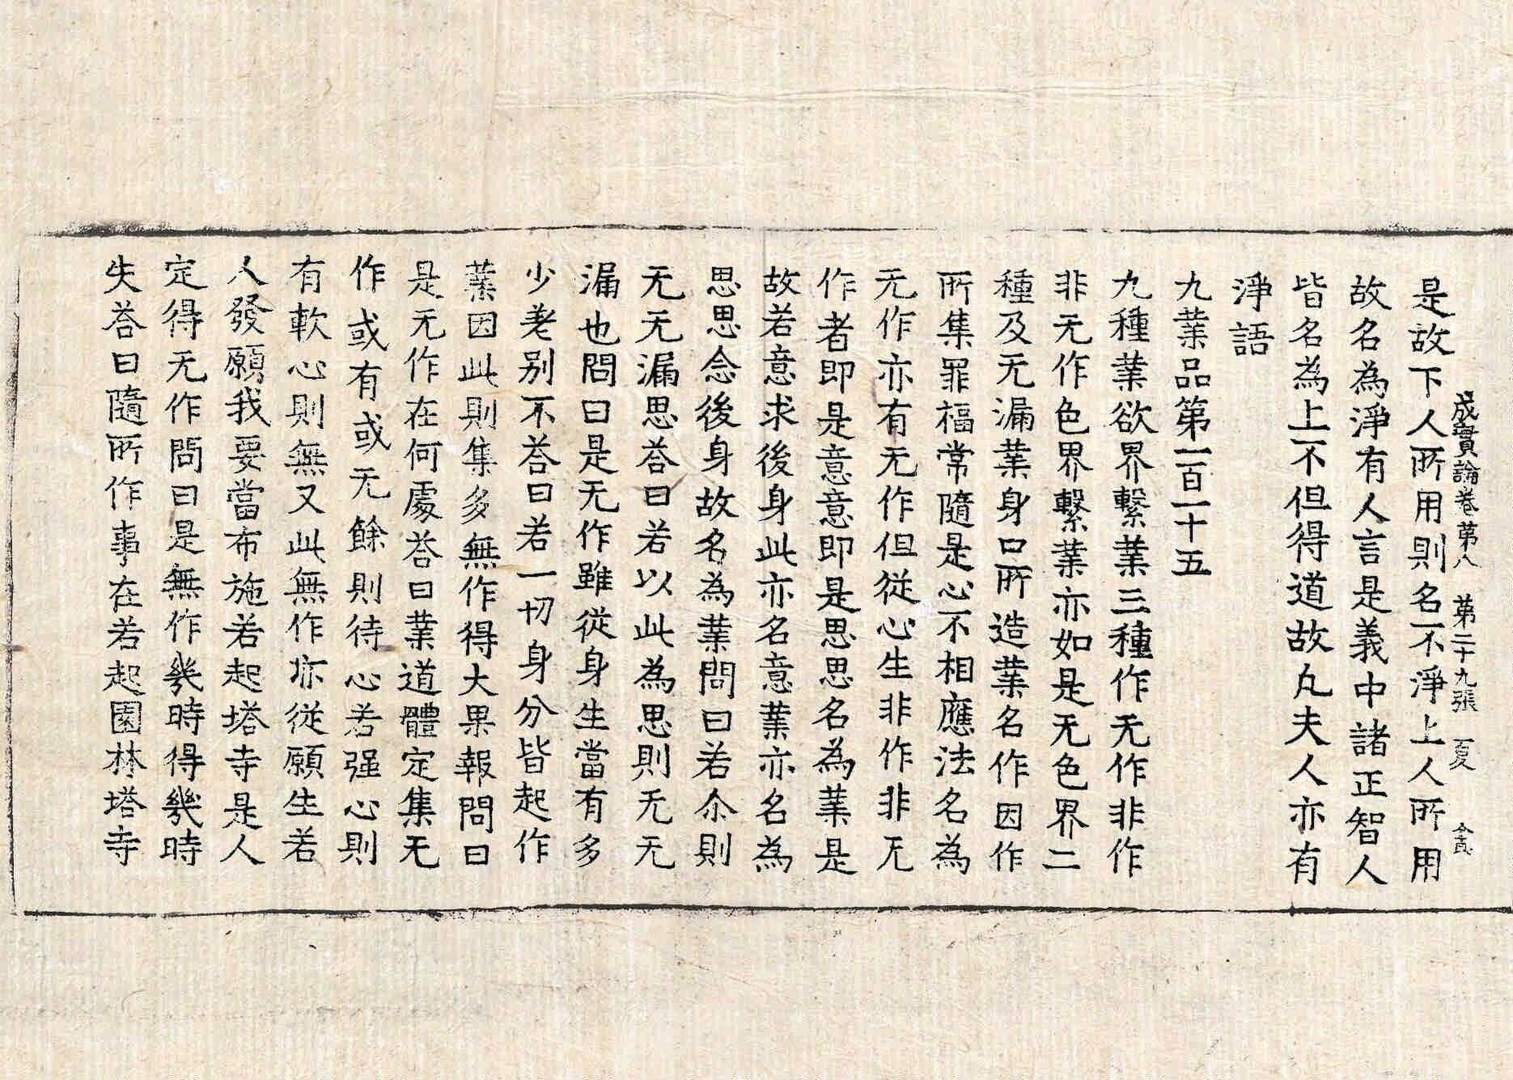 成實論卷苐八　苐二十九張　夏
是故下人所用則名不淨上人所用
故名為淨有人言是義中諸正智人
皆名為上不但得道故丸夫人亦有
淨語
九業品第一百一十五
九種業欲界繫業三種作无作非作
非无作色界繫業亦如是无色界二
種及无漏業身口所造業名作因作
所集罪福常隨是心不相應法名為
无作亦有无作但從心生非作非无
作者即是意意即是思思名為業是
故若意求後身此亦名意業亦名為
思思念後身故名為業問曰若尒則
无无漏思荅曰若以此為思則无无
漏也問曰是无作雖從身生當有多
少老别不荅曰若一切身分皆起作
業因此則集多無作得大果報問曰
是无作在何處荅曰業道體定集无
作或有或无餘則待心若强心則
有軟心則無又此無作亦從願生若
人發願我要當布施若起塔寺是人
定得无作問曰是無作幾時得幾時
失荅曰隨所作事在若起園林塔寺